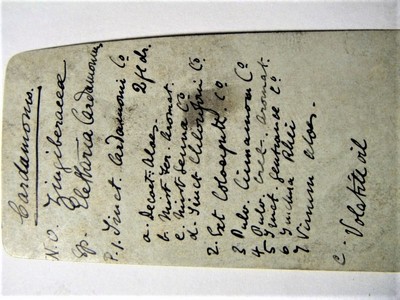 Cardamoms.
N.O. Zingiberaceæ
Sp. Elettaria Cardamomum
P. 1. Tinct. Cardamomi Co
2 fl dr.
a. Decoct. Aloes
b. Mist Fer. Aromat.
c. Mist Sennæ Co
d. Tinct Chlorofori Co
2. Ext Colocynth Co
3 Pulv. Cinnamom Co
4 Pulv. Cret. Aromat.
5 Tinct. Gentianæ Co
6 Tinctura Rhei
7 Vinum Aloes.
C. Volatile oil